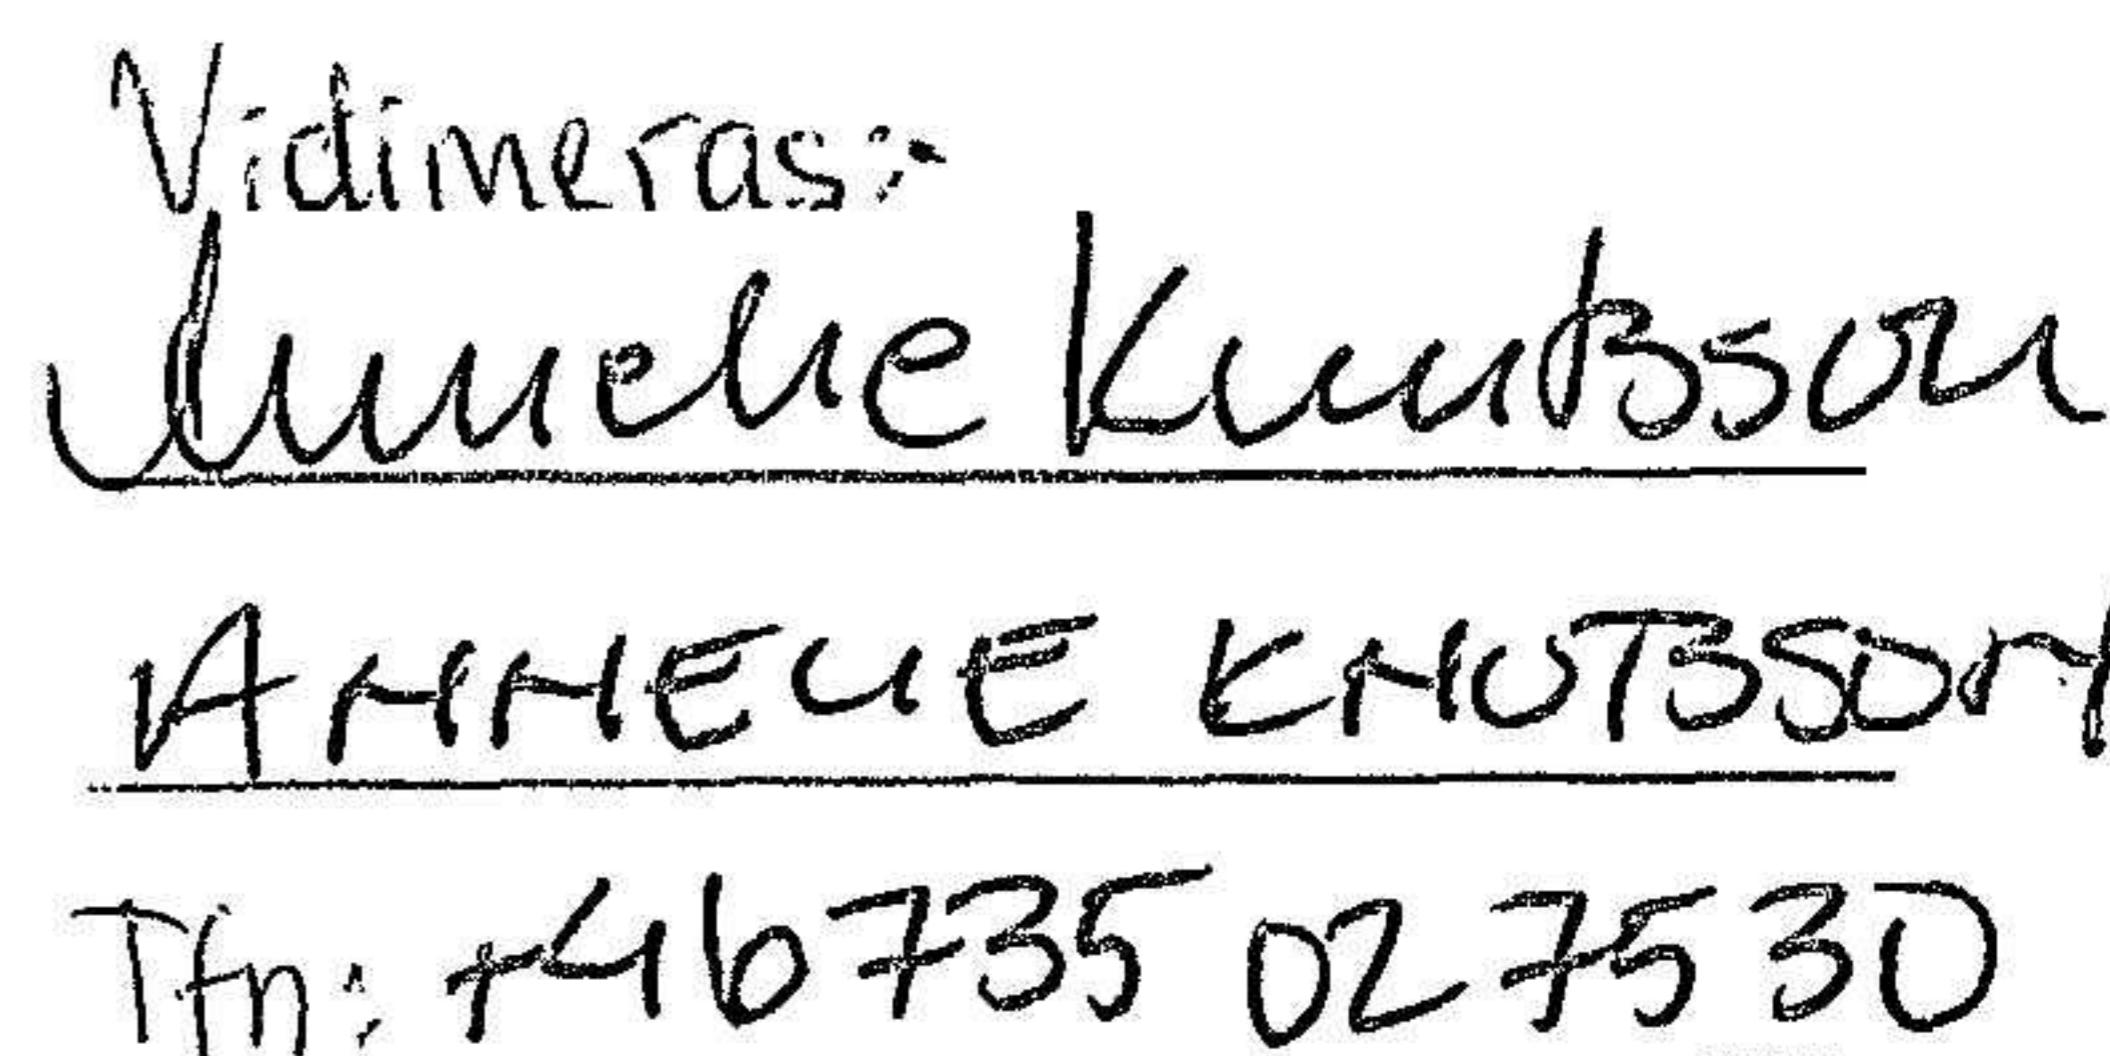 Vidimeras:
Annelie Knutsson
ANNELIE KNUTSSON
Tfn: +46735 027530